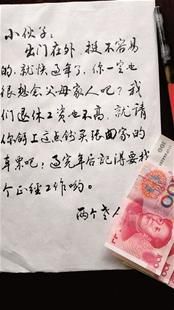 小伙子：
出门在外，挺不容易
的，就快过年了，你一定也
很想念父母家人吧？我
们退休工资也不高，就请
你邹上这点钱买张回家的
车票吧！过完年后记得要找
个正经工作哟。
两个老人
100